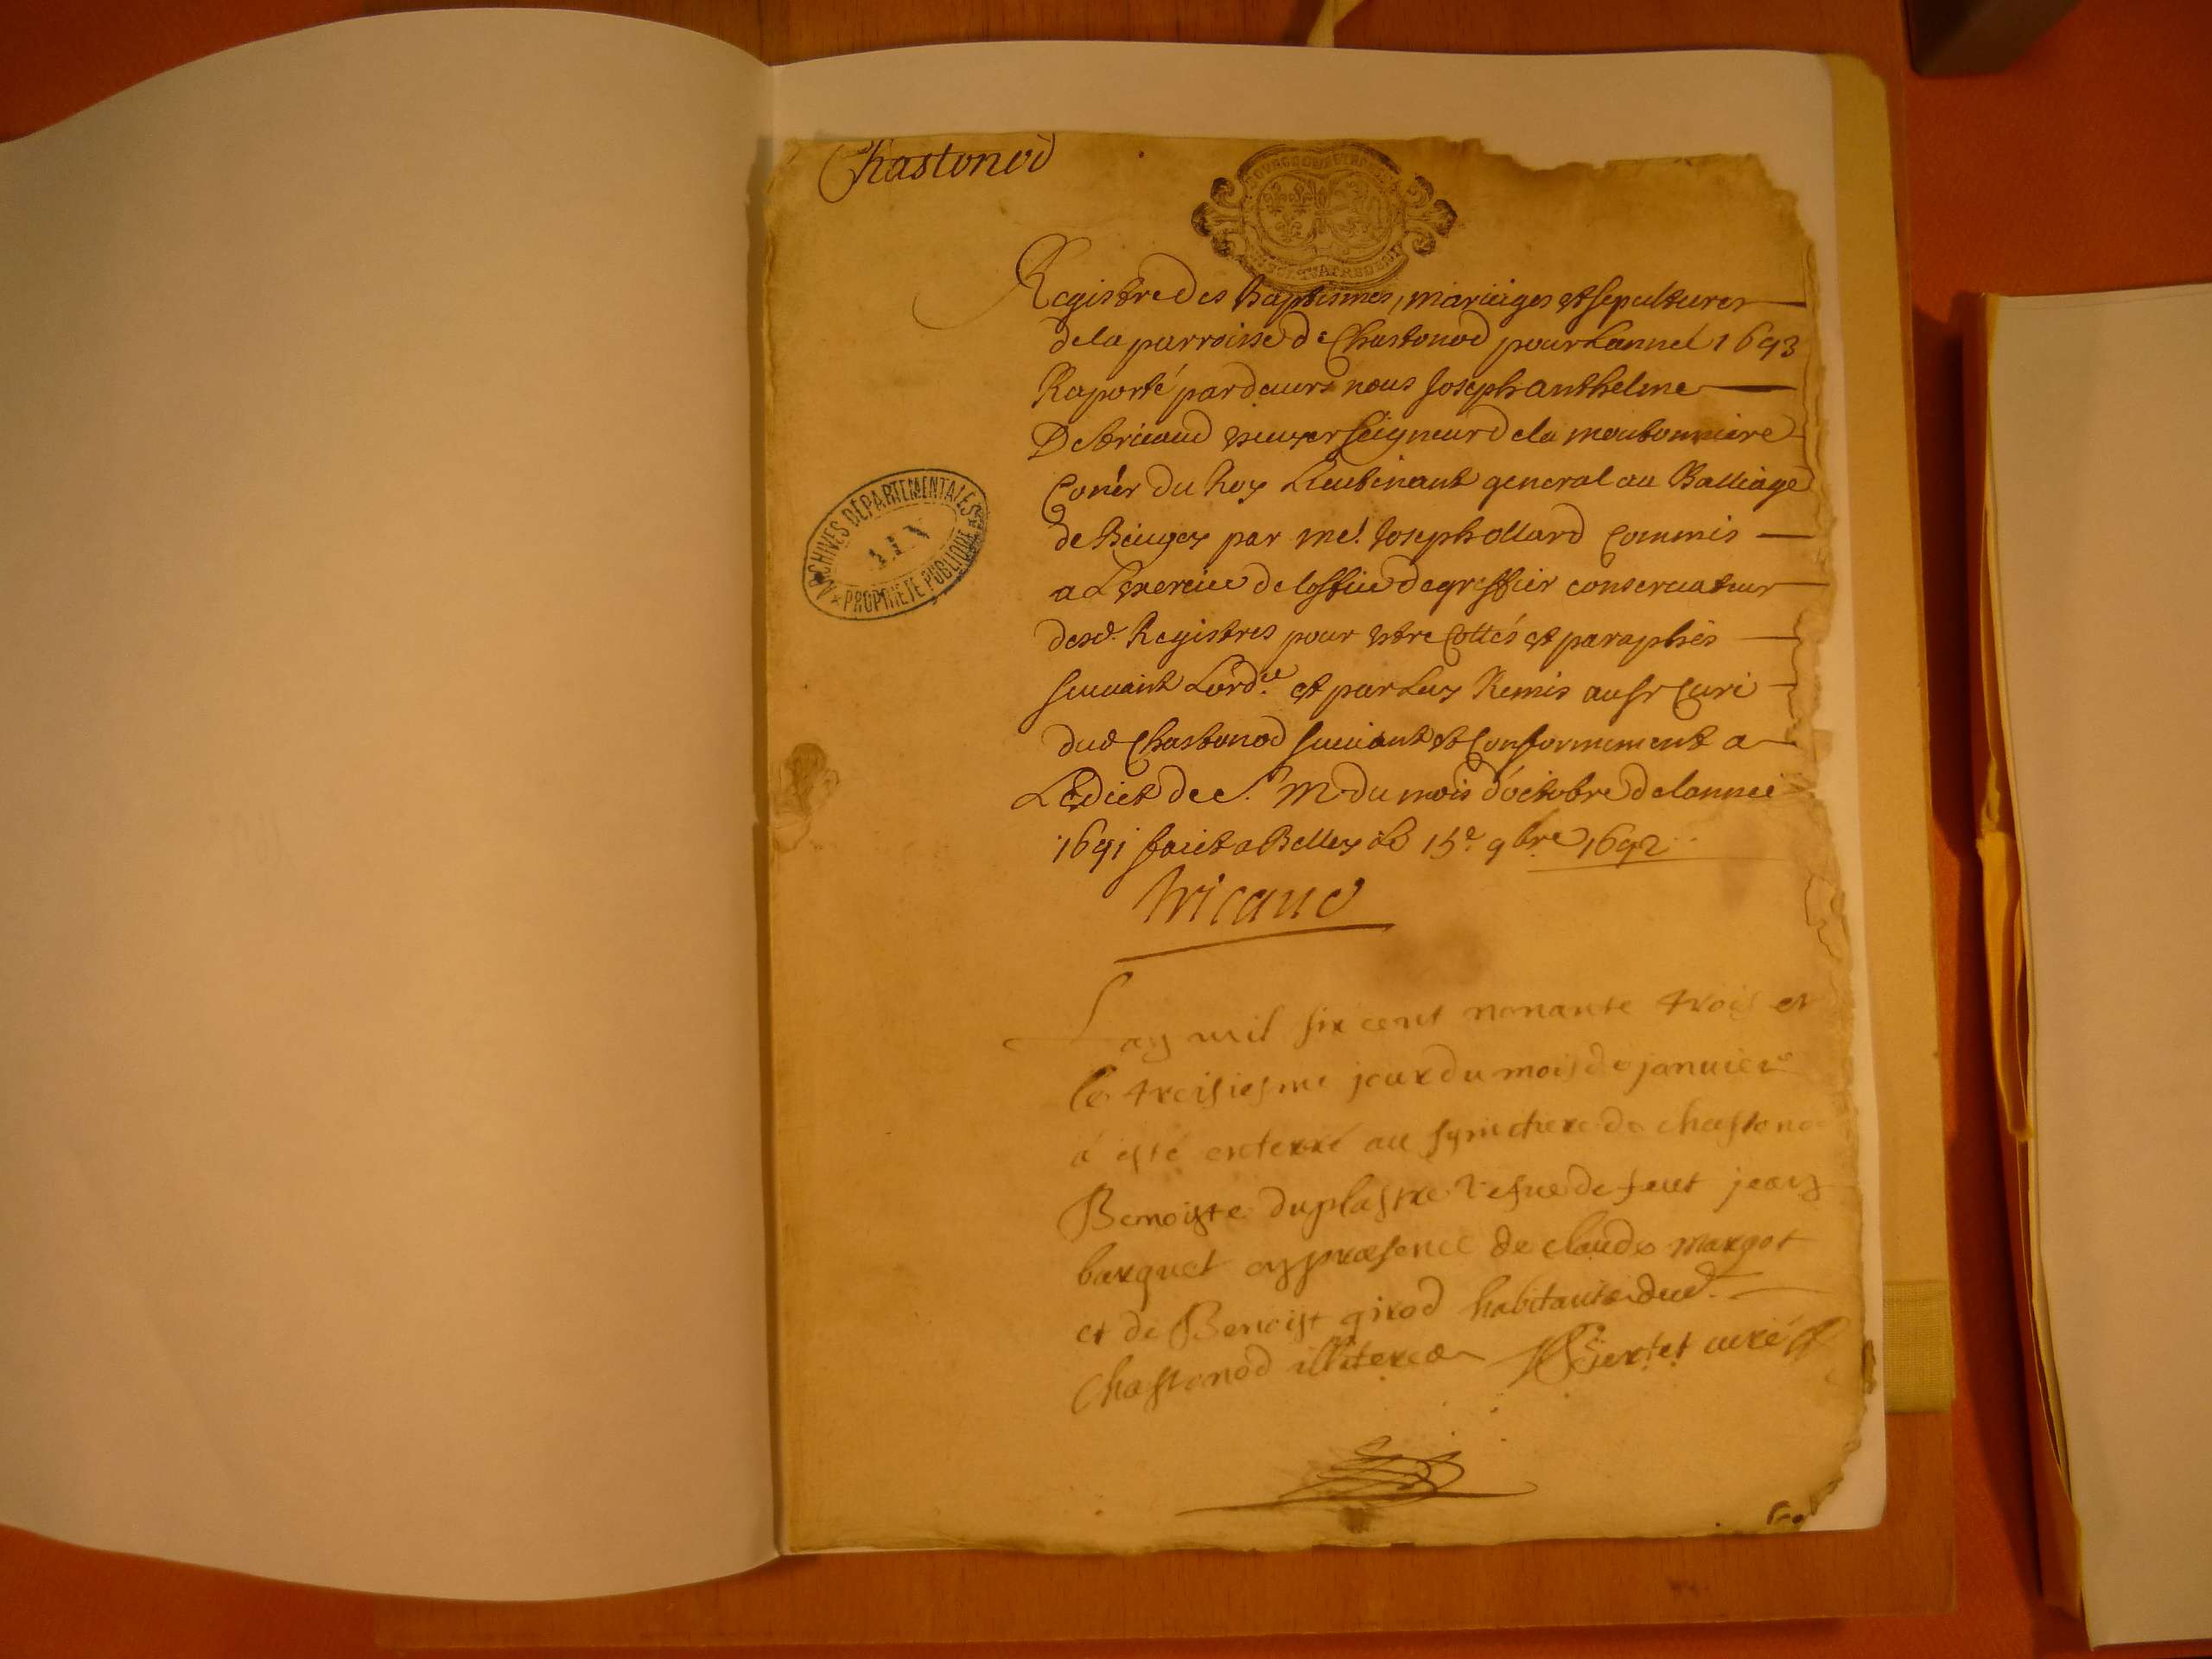 Chastonod
Registre des baptismes, mariages et sepultures
de la parroisse de Chastonod pour Lanneé 1693
Raporté pardeurs nous Joseph anthelme
De tricaud escuyer seigneur de la
Coner du Roy Lieutenant general au Balliage
de Beugey par me. Joseph ollard Commis
a Lexercice de loffice de greffier conservateur
desd. Registres pour estre Cottés et paraphés
suivant Lord.ce et par Luy Remis au sr Curé
dud Chastonod suivant et Conformement a
Lédict de S. M du mois d'octobre de lannee
1691 faict a Belley Le 15e 9bre 1692
tricaud
ARCHIVES DÉPARTEMENTALES
AIN
PROPRIÉTÉ PUBLIQUE
Lan mil six cent nonante trois et
le troisiesme jour du mois de januier
a esté enterré au symetiere de chastono
Benoiste duplastre vefue de feut jean
barquet en præsence de claude margot
et de Benoist girod habitants dud.
Chastonod illiterez curé